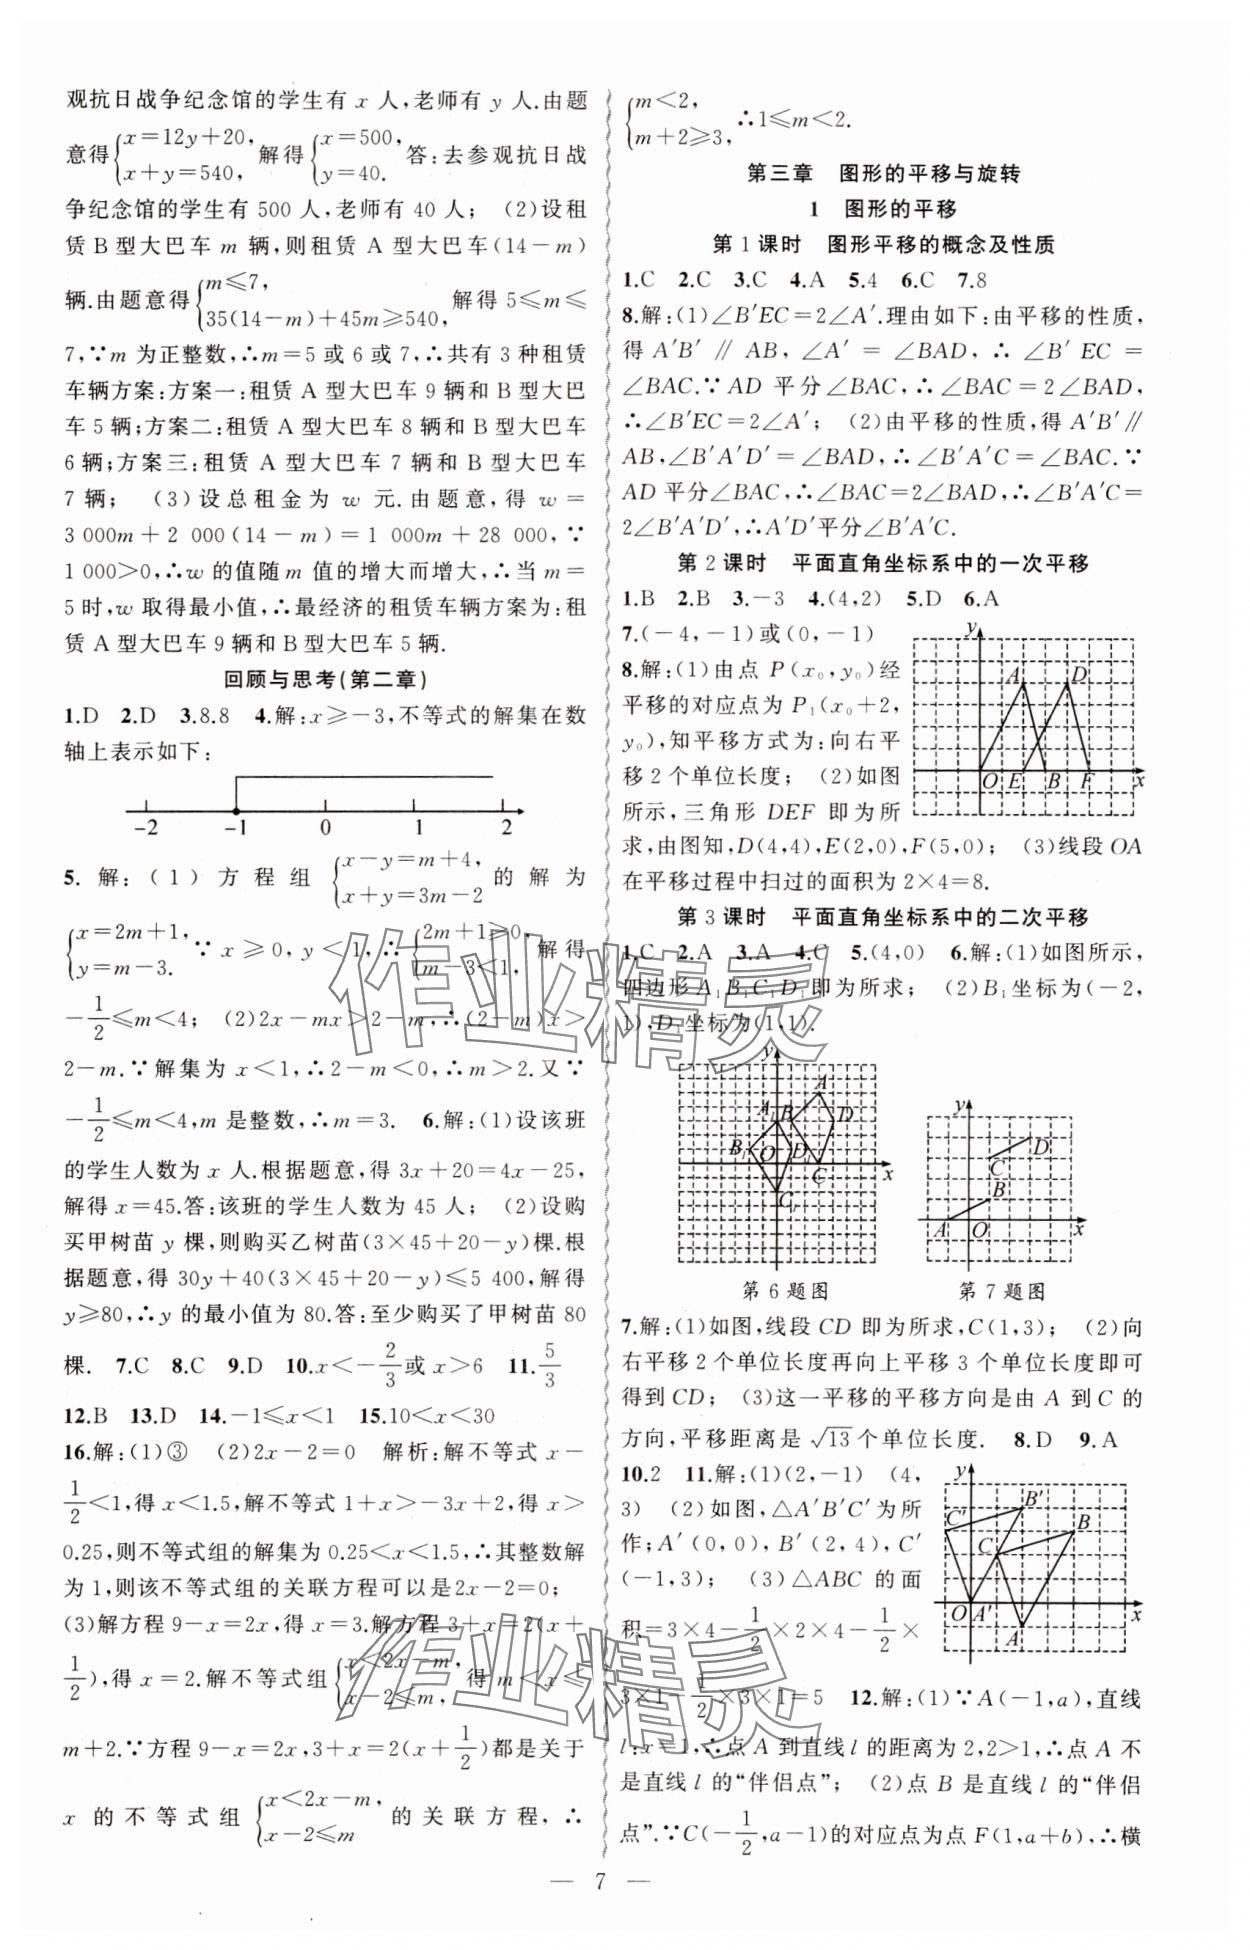 观抗日战争纪念馆的学生有 x 人,老师有 y 人.由题
意得{x=12y+20, x+y=540, 解得{x=500, y=40. 答:去参观抗日战
争纪念馆的学生有 500 人,老师有 40 人; (2)设租
赁 B 型大巴车 m 辆,则租赁 A 型大巴车(14-m)
辆.由题意得{m≤7, 35(14-m)+45m≥540, 解得 5≤m≤
7,∵m 为正整数,∴m=5 或 6 或 7,∴共有 3 种租赁
车辆方案:方案一:租赁 A 型大巴车 9 辆和 B 型大巴
车 5 辆;方案二:租赁 A 型大巴车 8 辆和 B 型大巴车
6 辆;方案三:租赁 A 型大巴车 7 辆和 B 型大巴车
7 辆; (3)设总租金为 w 元.由题意,得 w=
3 000m+2 000(14-m)=1 000m+28 000,∵
1 000>0,∴w 的值随 m 值的增大而增大,∴当 m=
5 时,w 取得最小值,∴最经济的租赁车辆方案为:租
赁 A 型大巴车 9 辆和 B 型大巴车 5 辆.
回顾与思考(第二章)
1.D 2.D 3.8.8 4.解:x≥-3,不等式的解集在数
轴上表示如下:
-2 -1 0 1 2
5.解:(1)方程组{x-y=m+4, x+y=3m-2 的解为
{x=2m+1, y=m-3. ∵x≥0,y<1,∴{2m+1≥0, m-3<1, 解得
-1/2≤m<4; (2)2x-mx>2-m,∴(2-m)x>
2-m.∵解集为 x<1,∴2-m<0,∴m>2.又∵
-1/2≤m<4,m 是整数,∴m=3. 6.解:(1)设该班
的学生人数为 x 人.根据题意,得 3x+20=4x-25,
解得 x=45.答:该班的学生人数为 45 人; (2)设购
买甲树苗 y 棵,则购买乙树苗(3×45+20-y)棵.根
据题意,得 30y+40(3×45+20-y)≤5 400,解得
y≥80,∴y 的最小值为 80.答:至少购买了甲树苗 80
棵. 7.C 8.C 9.D 10.x<-2/3或 x>6 11.5/3
12.B 13.D 14.-1≤x<1 15.10<x<30
16.解:(1)③ (2)2x-2=0 解析:解不等式 x-
1/2<1,得 x<1.5,解不等式 1+x>-3x+2,得 x>
0.25,则不等式组的解集为 0.25<x<1.5,∴其整数解
为 1,则该不等式组的关联方程可以是2x-2=0;
(3)解方程 9-x=2x,得 x=3.解方程 3+x=2(x+
1/2),得 x=2.解不等式组{x<2x-m, x-2≤m, 得 m<x≤
m+2.∵方程 9-x=2x,3+x=2(x+1/2)都是关于
x 的不等式组{x<2x-m, x-2≤m 的关联方程,∴
{m<2, m+2≥3, ∴1≤m<2.
第三章 图形的平移与旋转
1 图形的平移
第 1 课时 图形平移的概念及性质
1.C 2.C 3.C 4.A 5.4 6.C 7.8
8.解:(1)∠B′EC=2∠A′.理由如下:由平移的性质,
得 A′B′∥AB,∠A′=∠BAD,∴∠B′EC=
∠BAC.∵AD 平分∠BAC,∴∠BAC=2∠BAD,
∴∠B′EC=2∠A′; (2)由平移的性质,得 A′B′∥
AB,∠B′A′D′=∠BAD,∴∠B′A′C=∠BAC.∵
AD 平分∠BAC,∴∠BAC=2∠BAD,∴∠B′A′C=
2∠B′A′D′,∴A′D′平分∠B′A′C.
第 2 课时 平面直角坐标系中的一次平移
1.B 2.B 3.-3 4.(4,2) 5.D 6.A
7.(-4,-1)或(0,-1)
8.解:(1)由点 P(x₀,y₀)经
平移的对应点为 P₁(x₀+2,
y₀),知平移方式为:向右平
移 2 个单位长度; (2)如图
所示,三角形 DEF 即为所
求,由图知,D(4,4),E(2,0),F(5,0); (3)线段 OA
在平移过程中扫过的面积为 2×4=8.
y A D O E B F x
第 3 课时 平面直角坐标系中的二次平移
1.C 2.A 3.A 4.C 5.(4,0) 6.解:(1)如图所示,
四边形 A₁B₁C₁D₁ 即为所求; (2)B₁坐标为(-2,
1),D₁坐标为(1,1).
y A A₁ B D B₁ O D₁ C x C₁
y D C B A O x
第 6 题图 第 7 题图
7.解:(1)如图,线段 CD 即为所求,C(1,3); (2)向
右平移 2 个单位长度再向上平移 3 个单位长度即可
得到CD; (3)这一平移的平移方向是由 A 到 C 的
方向,平移距离是 √13 个单位长度. 8.D 9.A
10.2 11.解:(1)(2,-1) (4,
3) (2)如图,△A′B′C′为所
作;A′(0,0),B′(2,4),C′
(-1,3); (3)△ABC 的面
积=3×4-1/2×2×4-1/2×
3×1-1/2×3×1=5 12.解:(1)∵A(-1,a),直线
y B′ C′ B C O A′ A x
l:x=1,∴点 A 到直线 l 的距离为 2,2>1,∴点 A 不
是直线 l 的“伴侣点”; (2)点 B 是直线 l 的“伴侣
点”.∵C(-1/2,a-1)的对应点为点 F(1,a+b),∴横
— 7 —
作业精灵
作业精灵